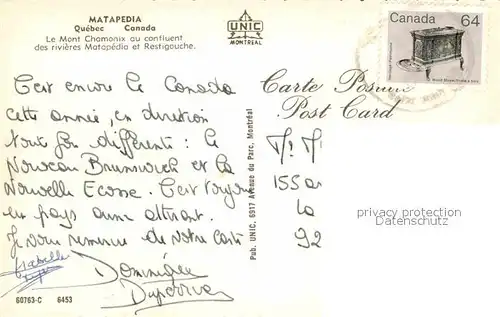 MATAPEDIA
Québec Canada
Le Mont Chamonix au confluent
des rivières Matapédia et Restigouche.
UNIC
MONTREAL
Canada 64
Carte Postale
Post Card
C'est encore le Canada
cette année, en direction
tout fait différente : le
Nouveau Brunswick et la
Nouvelle Ecosse. C'est toujours
un pays aussi attirant.
Je vous remercie de votre carte
Isabelle
Dominique
M. M
155
92
Pub. UNIC, 6917 Avenue du Parc, Montréal
privacy protection
DatenschutzWZ
60763-C 6453